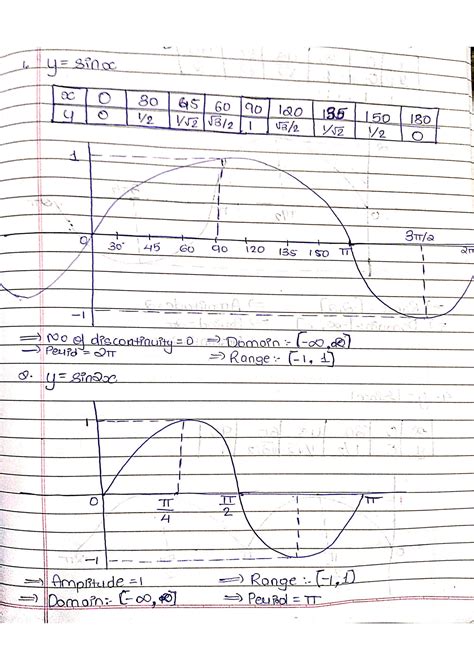 1. y = sinx
x 0 30 45 60 90 120 135 150 180
y 0 1/2 1/√2 √3/2 1 √3/2 1/√2 1/2 0
1
0 30° 45 60 90 120 135 150 π 3π/2 2π
-1
⇒ No of discontinuity = 0 ⇒ Domain :- [-∞, ∞]
⇒ Period = 2π ⇒ Range :- [-1, 1]
2. y = sin2x
1
0 π/4 π/2 π
-1
⇒ Amplitude = 1 ⇒ Range :- [-1, 1)
⇒ Domain :- [-∞, ∞] ⇒ Period = π